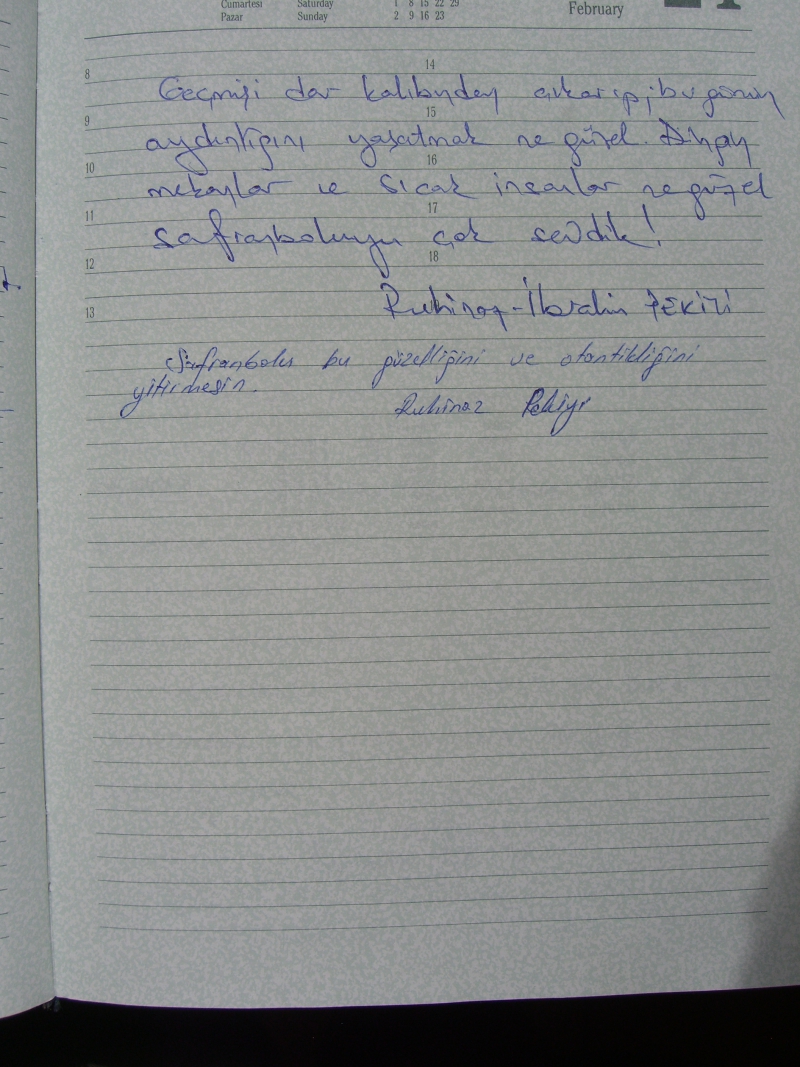 Cumartesi Saturday 1 8 15 22 29
Pazar Sunday 2 9 16 23
February
14
8
Geçmişi dar kalıbından çıkarıp, bu günün
15
9
aydınlığını yaşatmak ne güzel. Dingin
16
10
mekanlar ve sıcak insanlar ne güzel
17
11
Safranboluyu çok sevdik!
18
12
13
Ruhinaz-İbrahim
Safranbolu bu güzelliğini ve otantikliğini
yitirmesin.
Ruhinaz